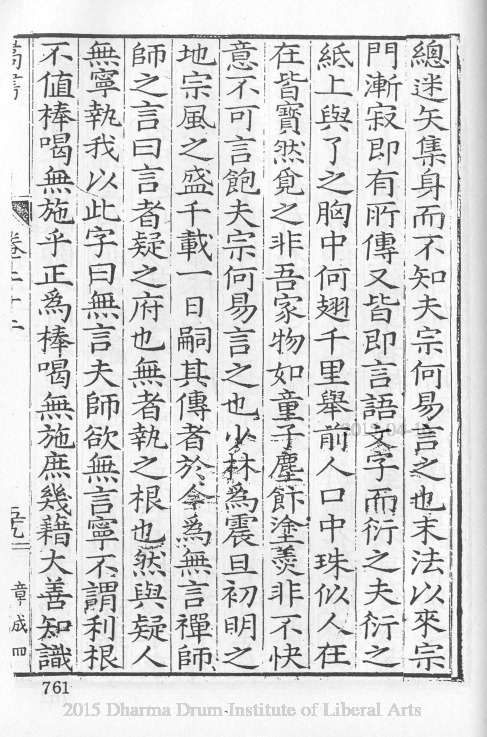 總迷矢集身而不知夫宗何易言之也末法以來宗
門漸寂即有所傳又皆即言語文字而衍之夫衍之
紙上與了之胸中何翅千里舉前人口中珠似人在
在皆寶然覓之非吾家物如童子塵飰塗羹非不快
意不可言飽夫宗何易言之也少林為震旦初明之
地宗風之盛千載一日嗣其傳者於今為無言禪師
師之言曰言者疑之府也無者執之根也然與疑人
無寧執我以此字曰無言夫師欲無言寧不謂利根
不值棒喝無施乎正為棒喝無施庶幾藉大善知識
嵩書
卷二十二
章成四
761
2015 Dharma Drum Institute of Liberal Arts